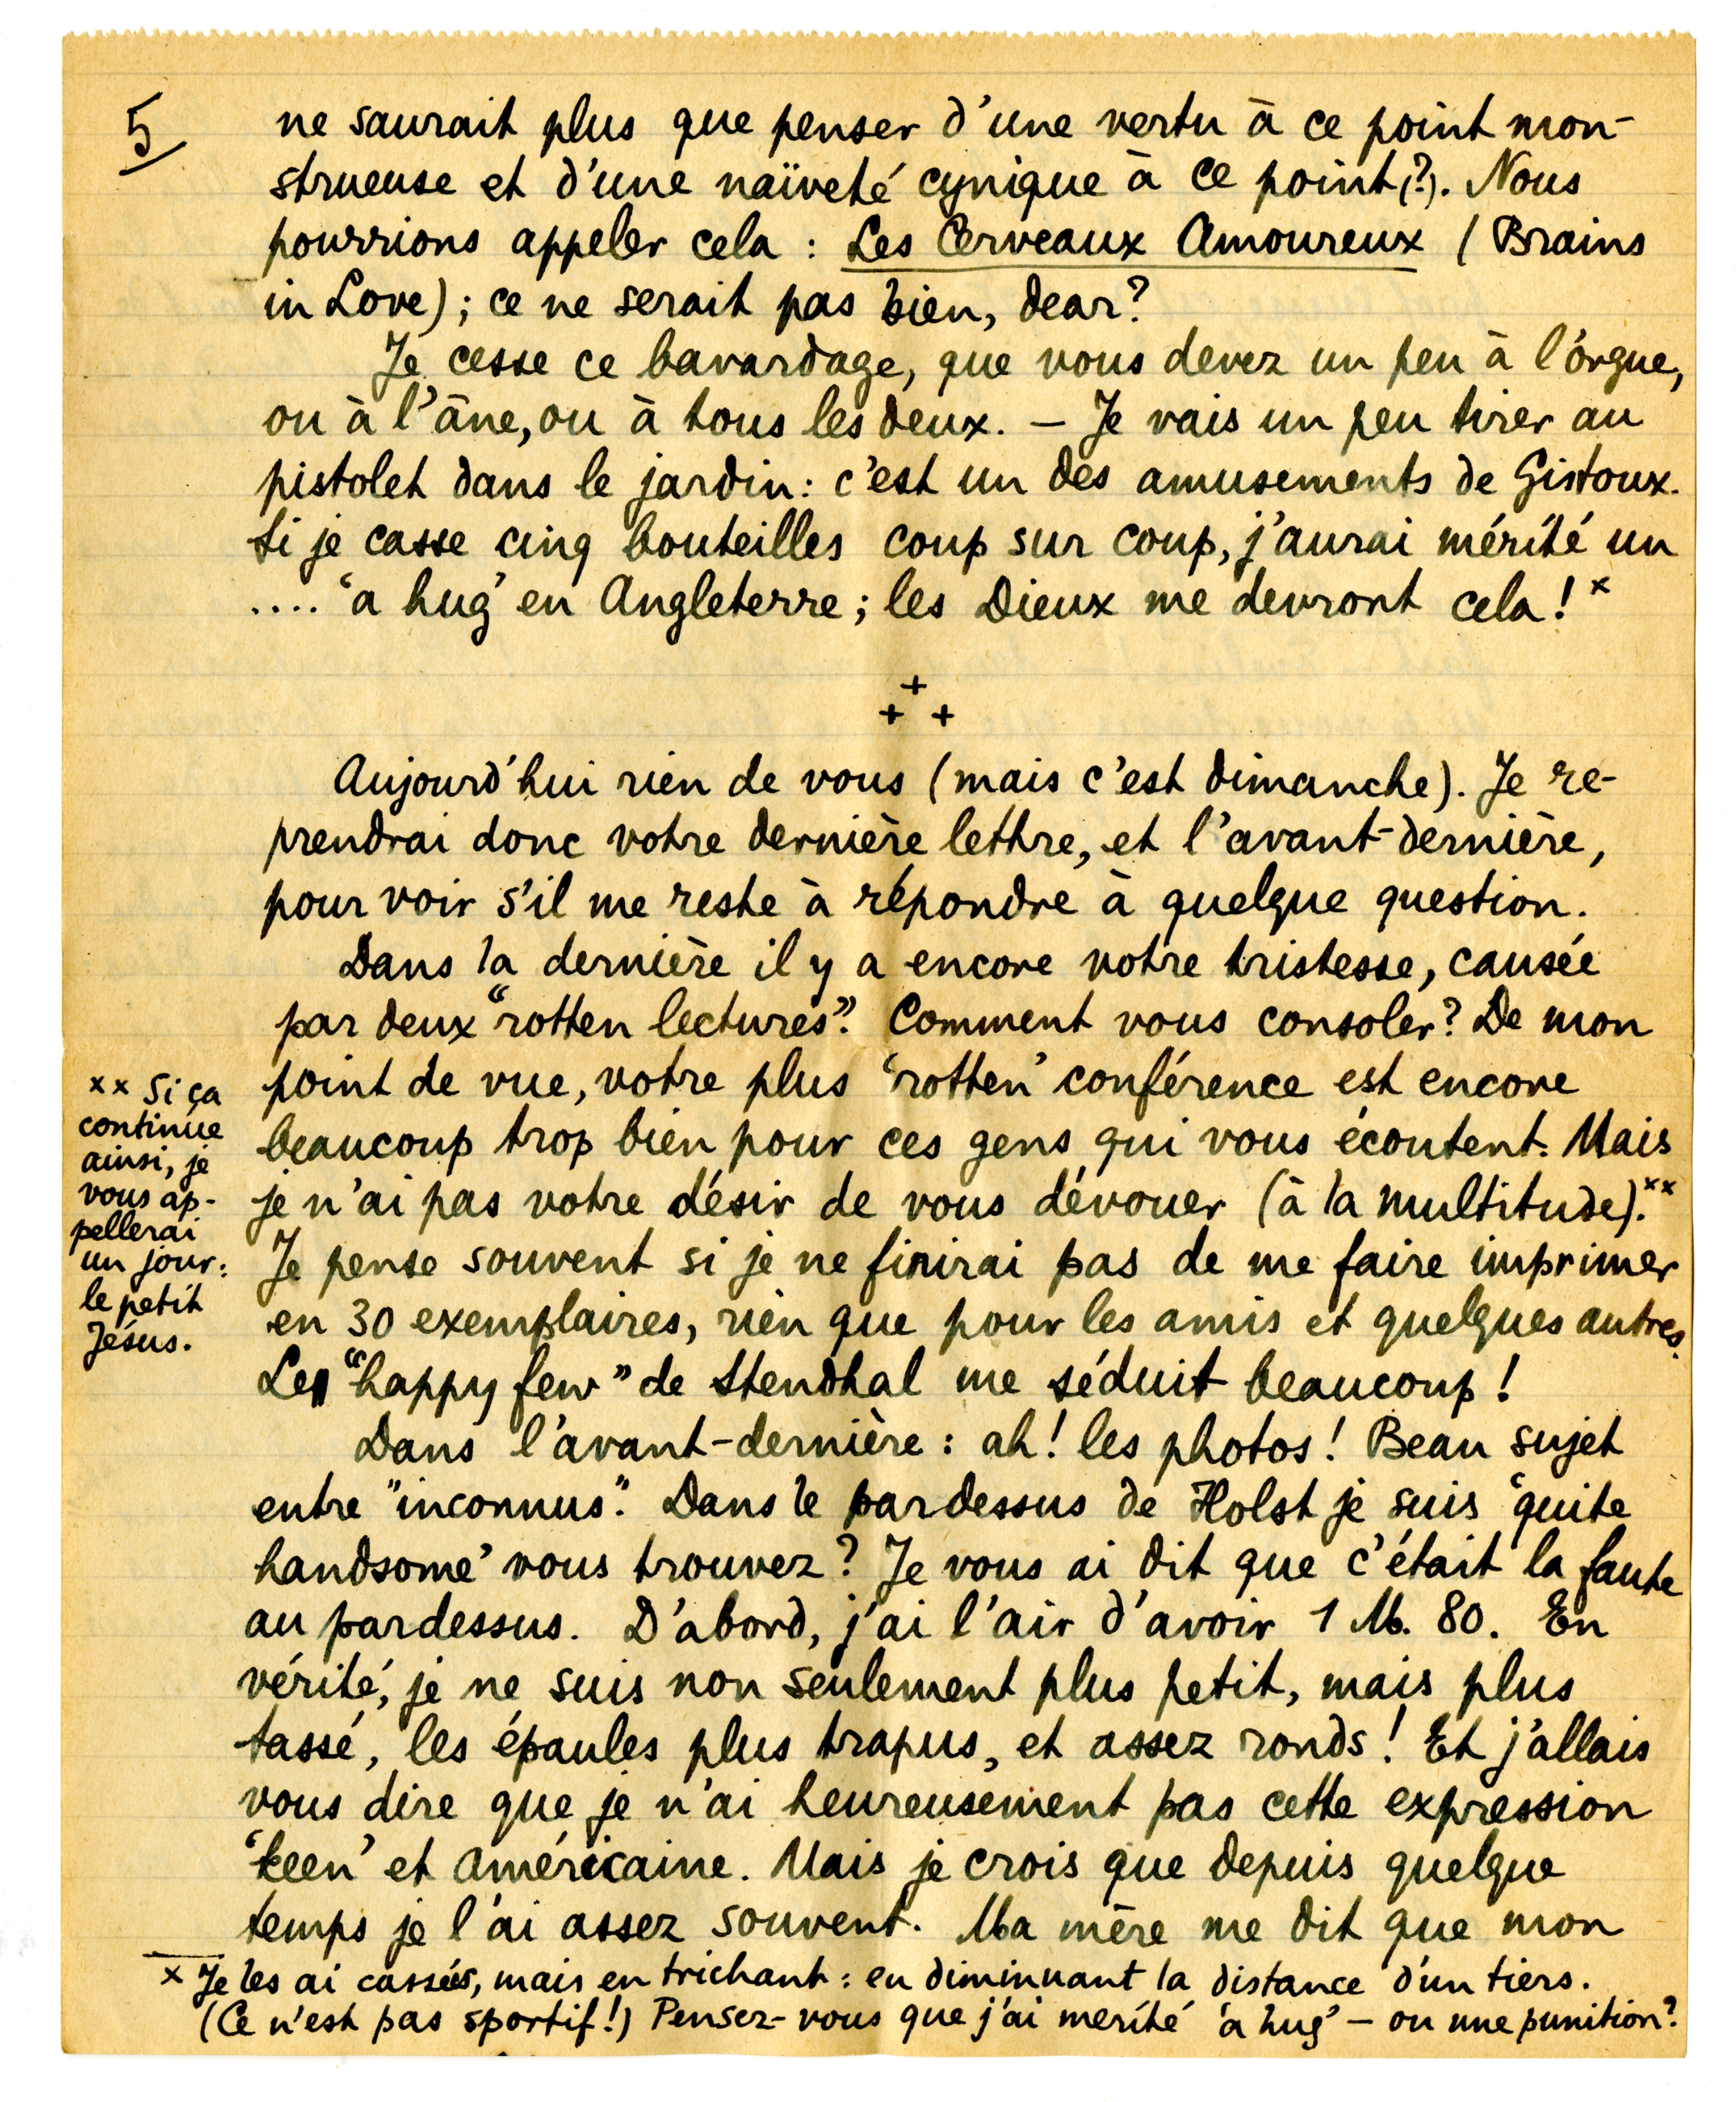 5
ne saurait plus que penser d'une vertu à ce point mon-
strueuse et d'une naïveté cynique à ce point(?). Nous
pourrions appeler cela : Les Cerveaux Amoureux (Brains
in Love) ; ce ne serait pas bien, dear?
Je cesse ce bavardage, que vous devez un peu à l'orgue,
ou à l'âne, ou à tous les deux. — Je vais un peu tirer au
pistolet dans le jardin : c'est un des amusements de Gistoux.
Si je casse cinq bouteilles coup sur coup, j'aurai mérité un
.... 'a hug' en Angleterre ; les Dieux me devront cela ! x
+
+ +
Aujourd'hui rien de vous (mais c'est dimanche). Je re-
prendrai donc votre dernière lettre, et l'avant-dernière,
pour voir s'il me reste à répondre à quelque question.
Dans la dernière il y a encore votre tristesse, causée
par deux "rotten lectures". Comment vous consoler? De mon
point de vue, votre plus 'rotten' conférence est encore
beaucoup trop bien pour ces gens qui vous écoutent. Mais
je n'ai pas votre désir de vous dévouer (à la multitude). xx
Je pense souvent si je ne finirai pas de me faire imprimer
en 30 exemplaires, rien que pour les amis et quelques autres.
Le "happy few" de Stendhal me séduit beaucoup !
Dans l'avant-dernière : ah ! les photos ! Beau sujet
entre "inconnus". Dans le pardessus de Holst je suis 'quite
handsome' vous trouvez? Je vous ai dit que c'était la faute
au pardessus. D'abord, j'ai l'air d'avoir 1 M. 80. En
vérité, je ne suis non seulement plus petit, mais plus
tassé, les épaules plus trapus, et assez ronds ! Et j'allais
vous dire que je n'ai heureusement pas cette expression
'keen' et américaine. Mais je crois que depuis quelque
temps je l'ai assez souvent. Ma mère me dit que mon
xx Si ça
continue
ainsi, je
vous ap-
pellerai
un jour :
le petit
Jésus.
x Je les ai cassés, mais en trichant : en diminuant la distance d'un tiers.
(Ce n'est pas sportif !) Pensez-vous que j'ai merité 'a hug' — ou une punition?